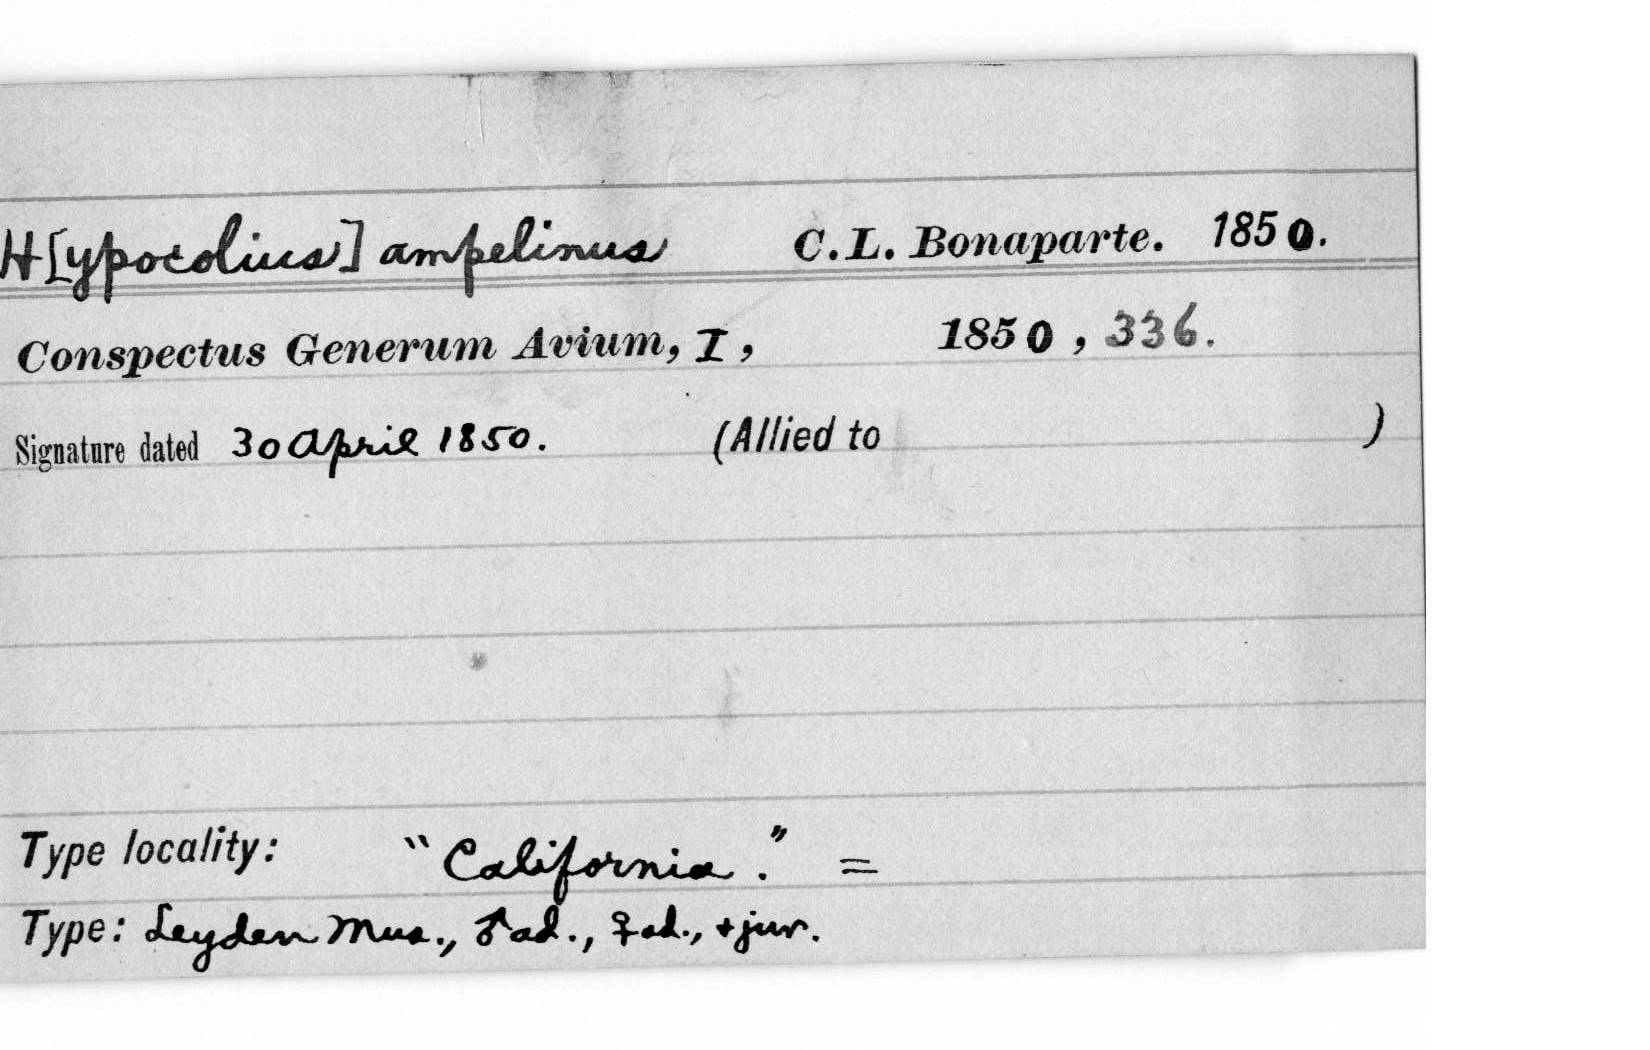 H[ypocolius] ampelinus C.L. Bonaparte. 1850.
Conspectus Generum Avium, I, 1850, 336.
Signature dated 30 April 1850. (Allied to )
Type locality: "California." =
Type: Leyden Mus., ♂ad., ♀ad., + juv.